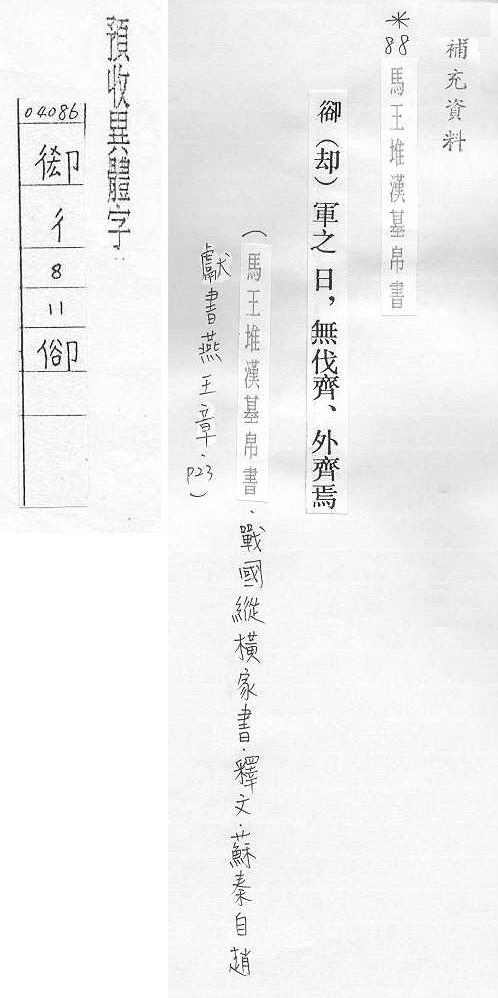 補充資料
*88 馬王堆漢墓帛書
卻(却)軍之日,無伐齊、外齊焉
(馬王堆漢墓帛書.戰國縱橫家書.釋文.蘇秦自趙
獻書燕王章.p23)
預收異體字:
04086
彳
8
11